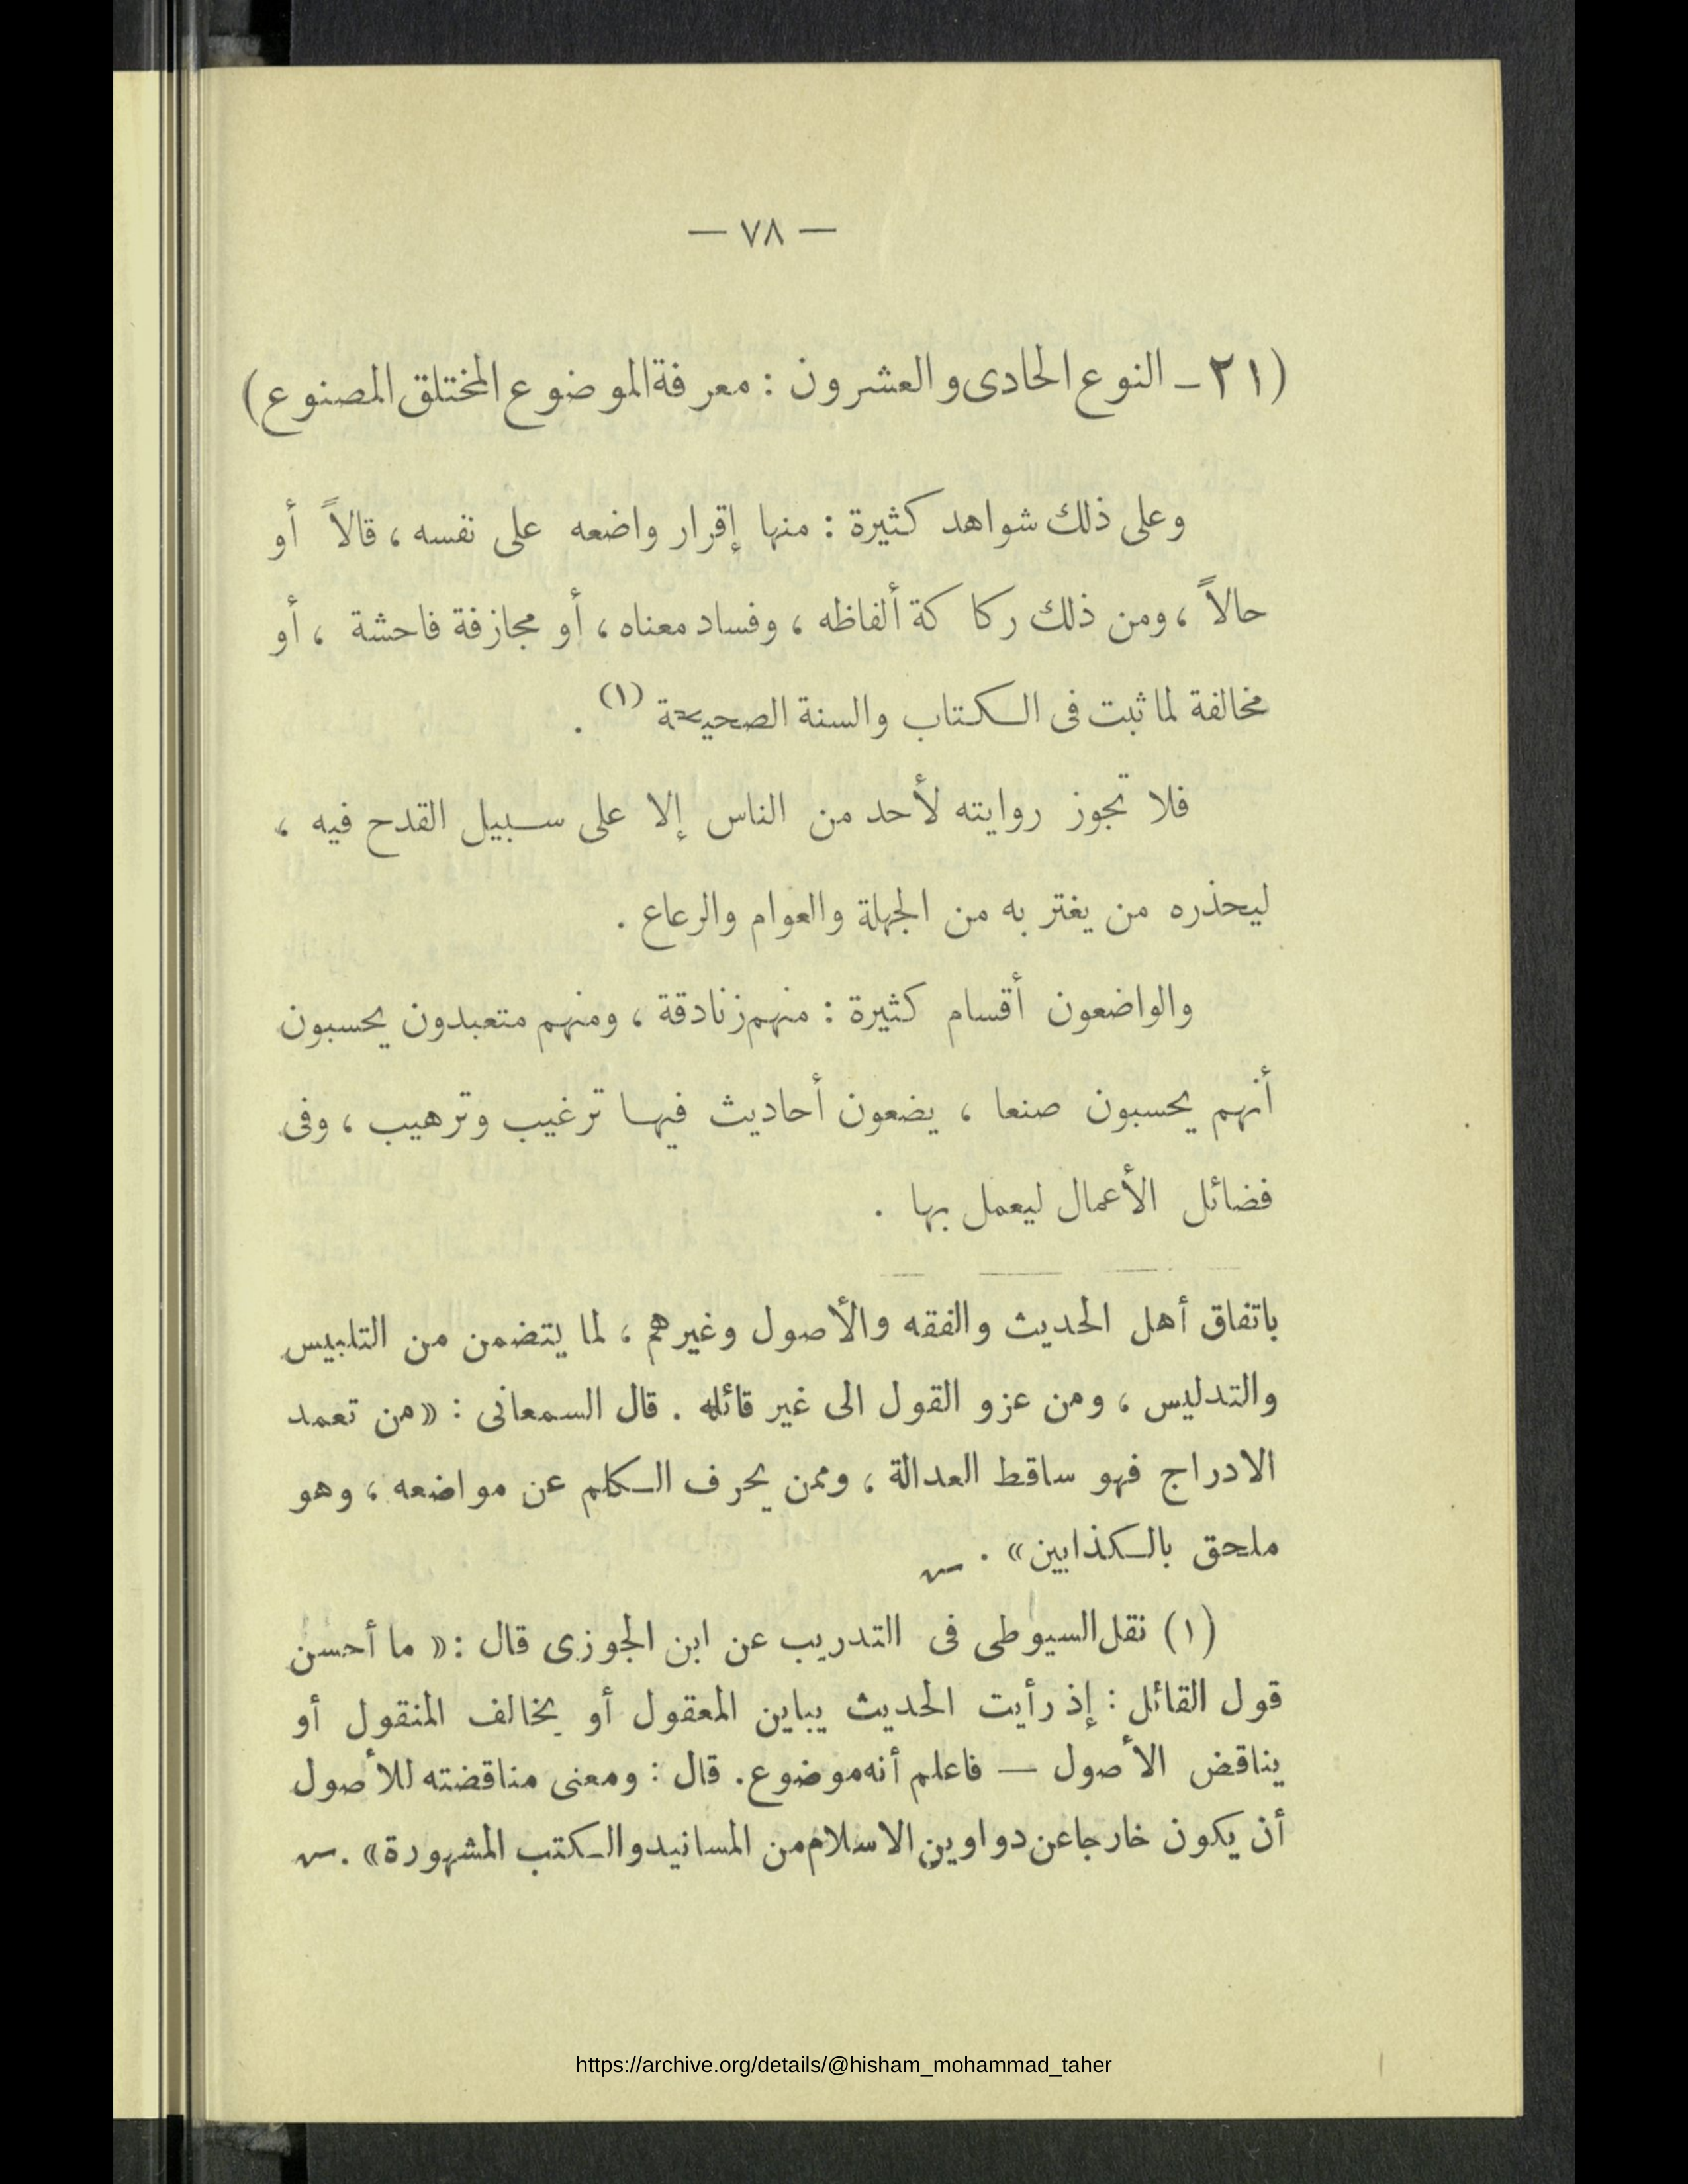 — ٧٨ —
(٢١ – النوع الحادى والعشرون : معرفة الموضوع المختلق المصنوع)
وعلى ذلك شواهد كثيرة : منها إقرار واضعه على نفسه ، قالاً أو
حالاً ، ومن ذلك ركاكة ألفاظه ، وفساد معناه ، أو مجازفة فاحشة ، أو
مخالفة لما ثبت فى الكتاب والسنة الصحيحة (١) .
فلا تجوز روايته لأحد من الناس إلا على سبيل القدح فيه ،
ليحذره من يغتر به من الجهلة والعوام والرعاع .
والواضعون أقسام كثيرة : منهم زنادقة ، ومنهم متعبدون يحسبون
أنهم يحسبون صنعا ، يضعون أحاديث فيها ترغيب وترهيب ، وفى
فضائل الأعمال ليعمل بها .
باتفاق أهل الحديث والفقه والأصول وغيرهم ، لما يتضمن من التلبيس
والتدليس ، ومن عزو القول الى غير قائله . قال السمعانى : «من تعمد
الادراج فهو ساقط العدالة ، وممن يحرف الكلم عن مواضعه ، وهو
ملحق بالكذابين» .
(١) نقل السيوطى فى التدريب عن ابن الجوزى قال : « ما أحسن
قول القائل : إذ رأيت الحديث يباين المعقول أو يخالف المنقول أو
يناقض الأصول — فاعلم أنه موضوع. قال : ومعنى مناقضته للأصول
أن يكون خارجا عن دواوين الاسلام من المسانيد والكتب المشهورة» .
https://archive.org/details/@hisham_mohammad_taher